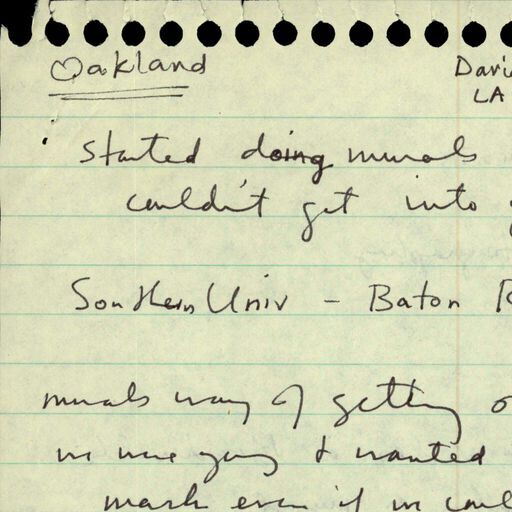 Oakland
David
LA
Started doing murals
couldn't get into
Southern Univ - Baton R
murals way of getting o
we were young & wanted
mark even if we coul